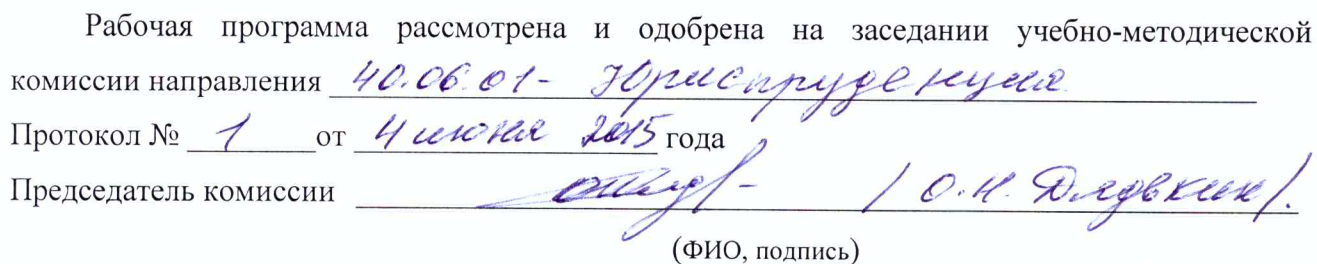 Рабочая программа рассмотрена и одобрена на заседании учебно-методической
комиссии направления 40.06.01- Юриспруденция
Протокол № 1 от 4 июня 2015 года
Председатель комиссии / О.Н. Дядькин /.
(ФИО, подпись)